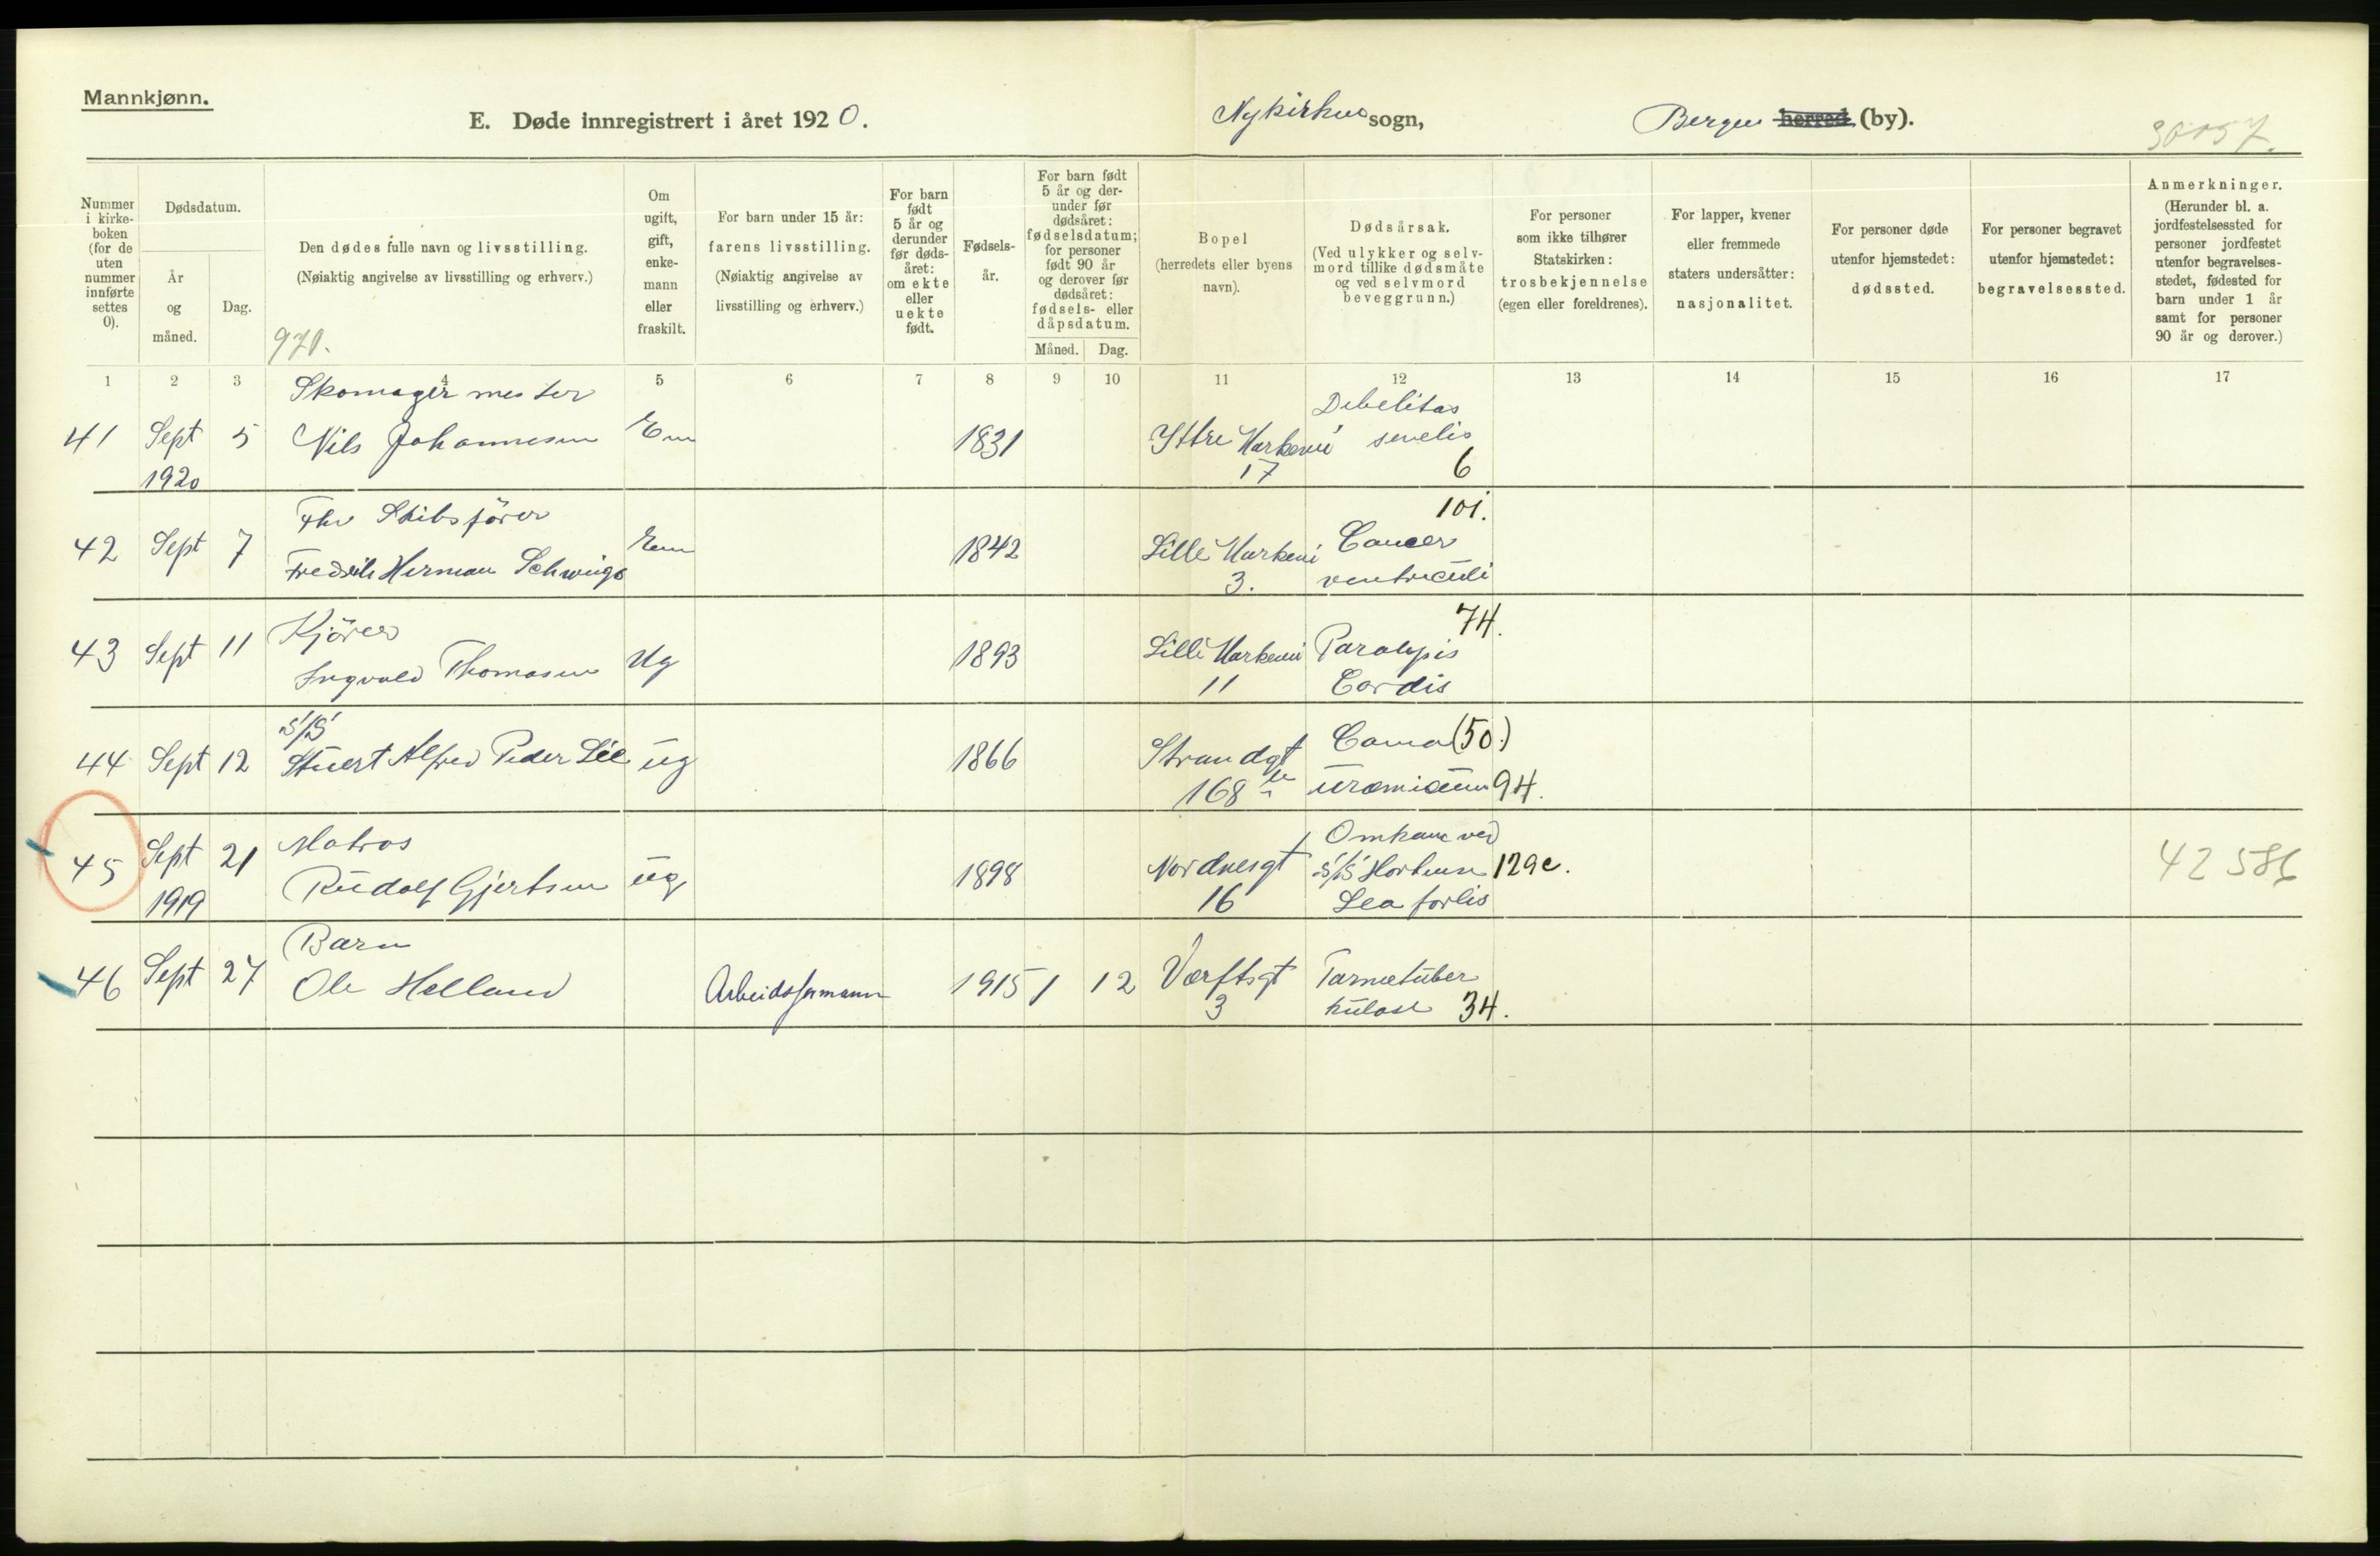 Mannkjønn.
E. Døde innregistrert i året 1920.
Nykirkens sogn,
Bergen herred (by).
Nummer i kirke-boken (for de uten nummer innførte settes 0).
Dødsdatum.
År og måned.
Dag.
Den dødes fulle navn og livsstilling.
(Nøiaktig angivelse av livsstilling og erhverv.)
970.
Om ugift, gift, enke-mann eller fraskilt.
For barn under 15 år:
farens livsstilling.
(Nøiaktig angivelse av livsstilling og erhverv.)
For barn født 5 år og derunder før døds-året: om ekte eller uekte født.
Fødsels-år.
For barn født 5 år og der-under før dødsåret: fødselsdatum; for personer født 90 år og derover før dødsåret: fødsels- eller dåpsdatum.
Måned. Dag.
Bopel
(herredets eller byens navn).
Dødsårsak.
(Ved ulykker og selv-mord tillike dødsmåte og ved selvmord beveggrunn.)
For personer som ikke tilhører Statskirken:
trosbekjennelse
(egen eller foreldrenes).
For lapper, kvener eller fremmede staters undersåtter:
nasjonalitet.
For personer døde utenfor hjemstedet:
dødssted.
For personer begravet utenfor hjemstedet:
begravelsessted.
Anmerkninger.
(Herunder bl. a. jordfestelsessted for personer jordfestet utenfor begravelses-stedet, fødested for barn under 1 år samt for personer 90 år og derover.)
1 2 3 4 5 6 7 8 9 10 11 12 13 14 15 16 17
Skomagermester
41 Sept 5 Nils Johannesen Em 1831 Yttre Markevei Debelitas senelis
1920 17 6
Fhv Skibsfører 101.
42 Sept 7 Fredrik Herman Em 1842 Lille Markevei Cancer
3. ventriculi
Kjører 74.
43 Sept 11 Ingvald Thomasen Ug 1893 Lille Markevei Paralysis
11 Cordis
S/S
44 Sept 12 Stuert Alfred Peder Lie ug 1866 Strandgt Coma (50.)
168 uræmicum 94.
Matros Omkom ved
45 Sept 21 Rudolf Gjertsen ug 1898 Nordnesgt S/S 129c. 42586
1919 16 Sea forlis
Barn
46 Sept 27 Ole Helland Arbeidsformann 1915 1 12 Værftsgt Tarmetuber
3 kulose 34.